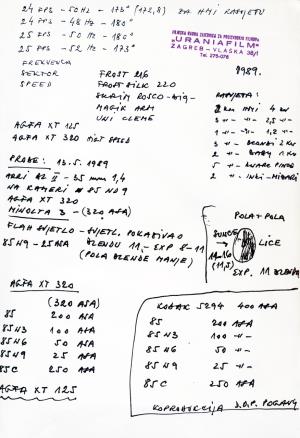 24 FPS - 50 Hz - 173° (172,8) ZA HMI RASVJETU
24 FPS - 48 Hz - 180°
25 FPS - 50 Hz - 180°
25 FPS - 52 Hz - 173°
FILMSKA RADNA ZAJEDNICA ZA PROIZVODNJU FILMOVA
"URANIAFILM"
ZAGREB - VLAŠKA 38/I
Tel. 275-076
FREKVENCA
SEKTOR
SPEED
FROST 216
FROST SILK 220
ROSCO
MAGIK ARM
UNI CLEME
1989.
RASVJETA:
2 KOM HMI 4 KW
3 -"- -"- 2,5 -"-
1 -"- -"- 1,2 -"-
3 -"-
2 -"- BABY 1 KW
5 -"-
2 -"-
AGFA XT 125
AGFA XT 320 HIGH SPEED
PROBE: 13.5.1989
ARRI II - 35 mm 1,4
NA KAMERI # 85 ND9
AGFA XT 320
MINOLTA 3 - (320 ASA)
FLAH SVJETLO - SVJETL. POKAZIVAO
85N9 - 25 ASA BLENDU 11, - EXP 8-11
(POLA BLENDE MANJE)
POLA + POLA
SUNCE
LICE
11-16
(11,5)
EXP. 11 BLENDA
AGFA XT 320
(320 ASA)
85 200 ASA
85N3 100 ASA
85N6 50 ASA
85N9 25 ASA
85C 250 ASA
AGFA XT 125
KODAK 5294 400 ASA
85 200 ASA
85N3 100 -"-
85N6 50 -"-
85N9 25 -"-
85C 250 ASA
KOPRODUKCIJA D.O.P. POGANY